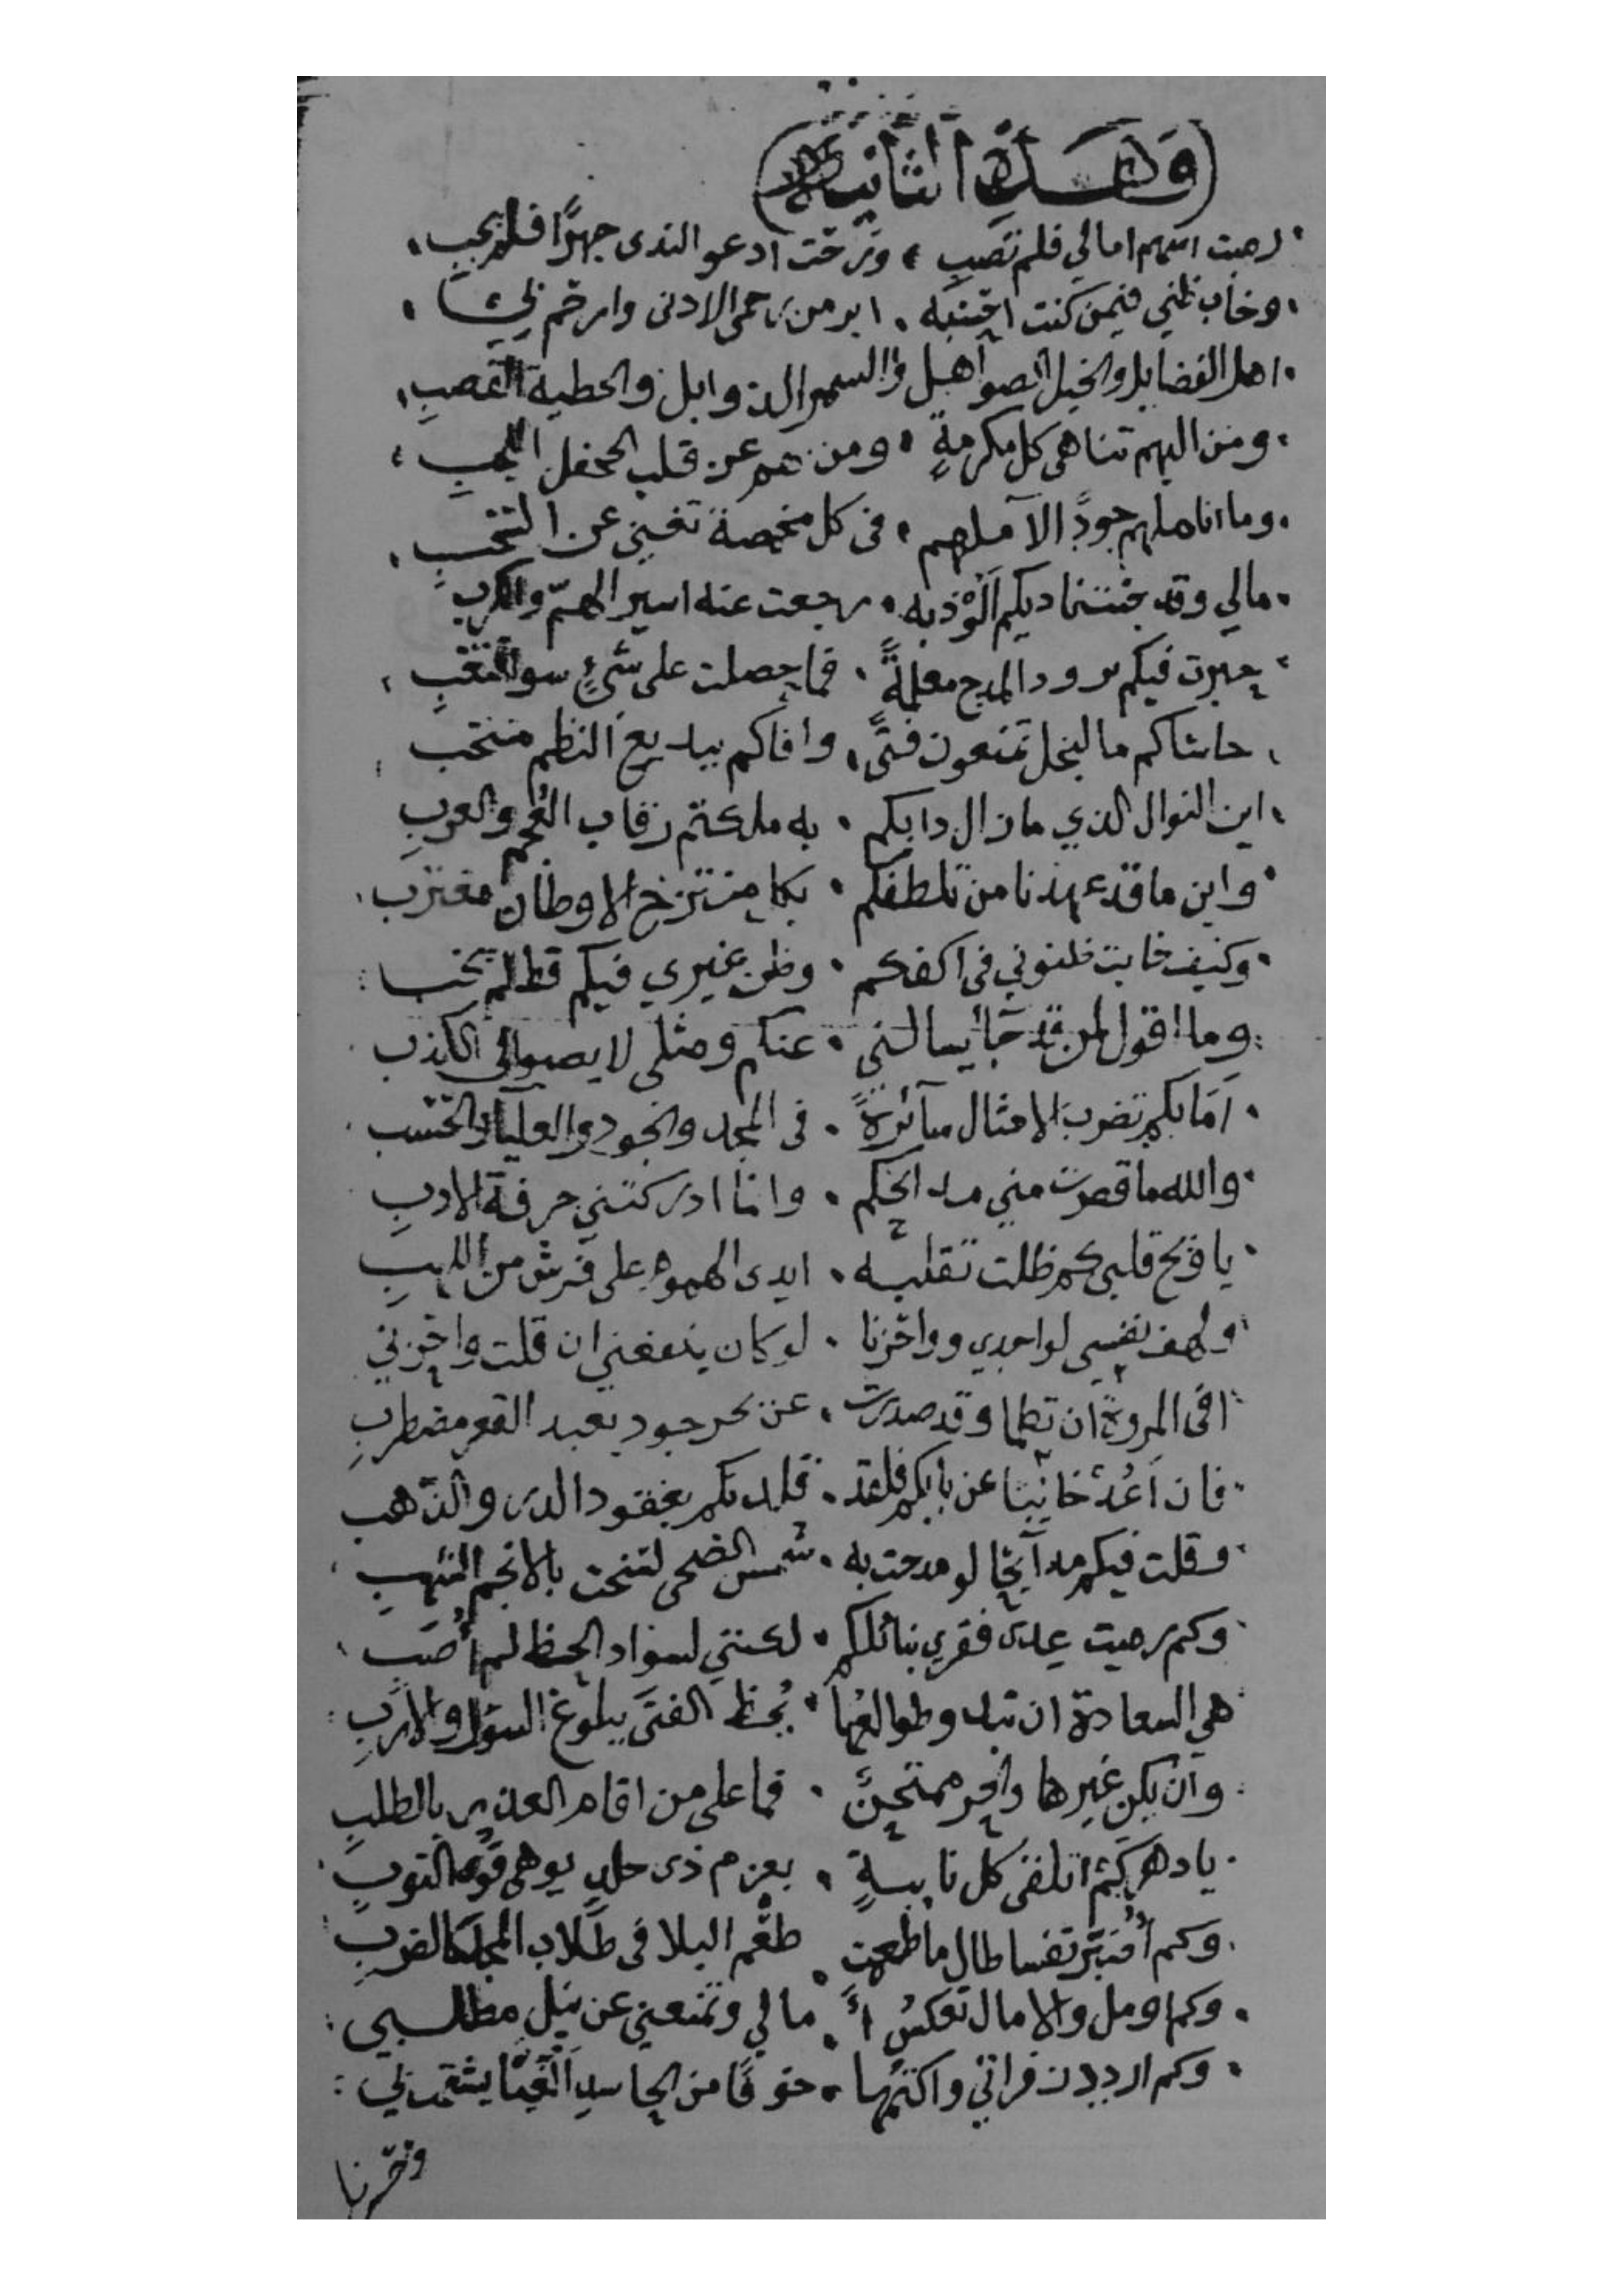 وهذه الثانية
رميت اسهم امالي فلم تصب ، ورحت ادعو الندى جهرًا فلم يجب
وخاب ظني فيمن كنت احسبه . ابر من رحمي الادنى وارحم بي
اهل الفضايل والخيل الصواهل والسمر الذوابل والخطية القصب
ومن اليهم تناهى كل مكرمةٍ . ومن هم عن قلب الجحفل اللجب
وما اناملهم جودًا لآملهم . فى كل مخمصة تغني عن السحب
مالي وقد جئت ناديكم الوذ به . رجعت عنه اسير الهمّ والكرب
حبرت فيكم برود المدح معلمةً . فما حصلت على شيءٍ سوى التعب
حاشاكم ما لبخل تمنعون فتًى . وافاكم ببديع النظم منتخب
اين النوال الذي ما زال دابكم . به ملكتم رقاب العجم والعرب
واين ما قد عهدنا من تلطفكم . بكل منتزح الاوطان مغترب
وكيف خابت ظنوني فى اكفكم . وظن غيري فيكم قط لم يخب
وما اقول لمن قد جا يسالني . عنكم ومثلي لا يصبو الى الكذب
اما بكم تضرب الامثال سآئرةً . فى المجد والجود والعليآء والحسب
والله ما قصرت مني مدائحكم . وانما ادركتني حرفة الادب
يا ويح قلبي كم ظلت تقلبه . ايدى الهموم على فرش من اللهب
ولهف نفسي لو اجدى وواحزنا . لو كان ينفعني ان قلت واحزني
افى المروة ان تظما وقد صدرت . عن بحر جود بعيد القعر مضطرب
فان اعُد خائبا عن بابكم فلقد . قلدتكم بعقود الدر والذهب
وقلت فيكم مدآيحا لو مدحت به . شمس الضحى لتنحت بالانجم الشهب
وكم رميت عدى فقري بنائلكم . لكنني لسواد الحظ لم أُصب
هي السعادة ان تبدو طوالعها . يُحظ الفتى ببلوغ السؤل والارب
وان يكن غيرها والحر ممتحنٌ . فما على من اقام العذر بالطلب
يا دهر كم اتلقى كل نايبةٍ . بعزم ذى جلدٍ يوهى قوى النوب
وكم أُمنّى نفسا طال ما طعمت . طعم البلا فى طلاب المجد كالضرب
وكم اومل والامال تعكسُ آ . مالي وتمنعني عن نيل مطلبي
وكم اردد زفراتي واكتمها . خوفًا من الحاسد يشمت بي
وحرنا